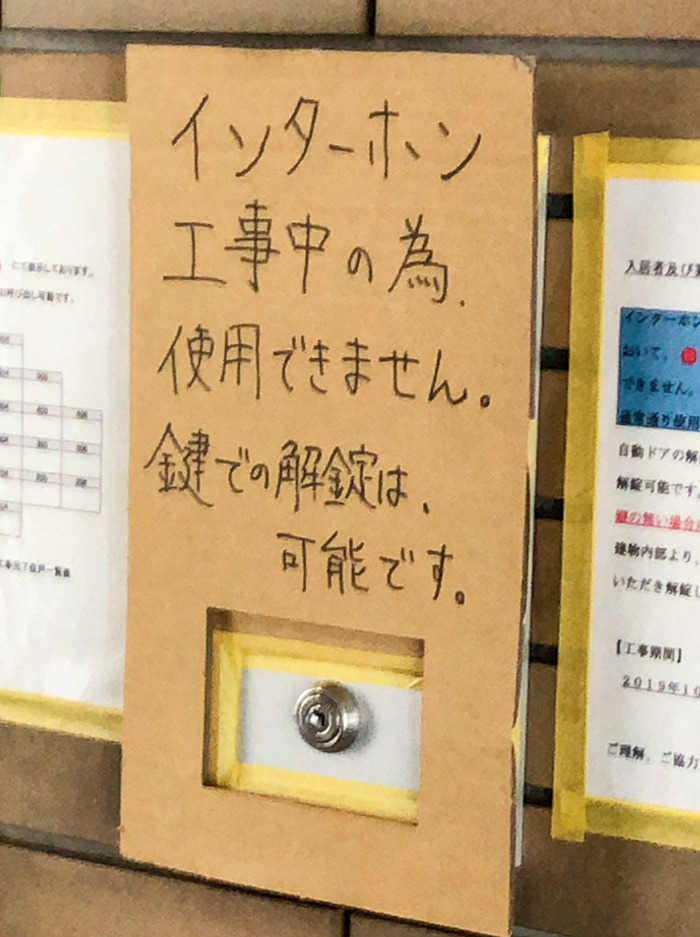 にて表示しております。
インターホン
工事中の為、
使用できません。
鍵での解錠は、
可能です。
入居者及び
インターホン
おいて、
できません。
通常通り使用
自動ドアの解
解錠可能です。
鍵の無い場合
建物内部より、
いただき解錠し
【工事期間】
2019年10
ご理解、ご協力